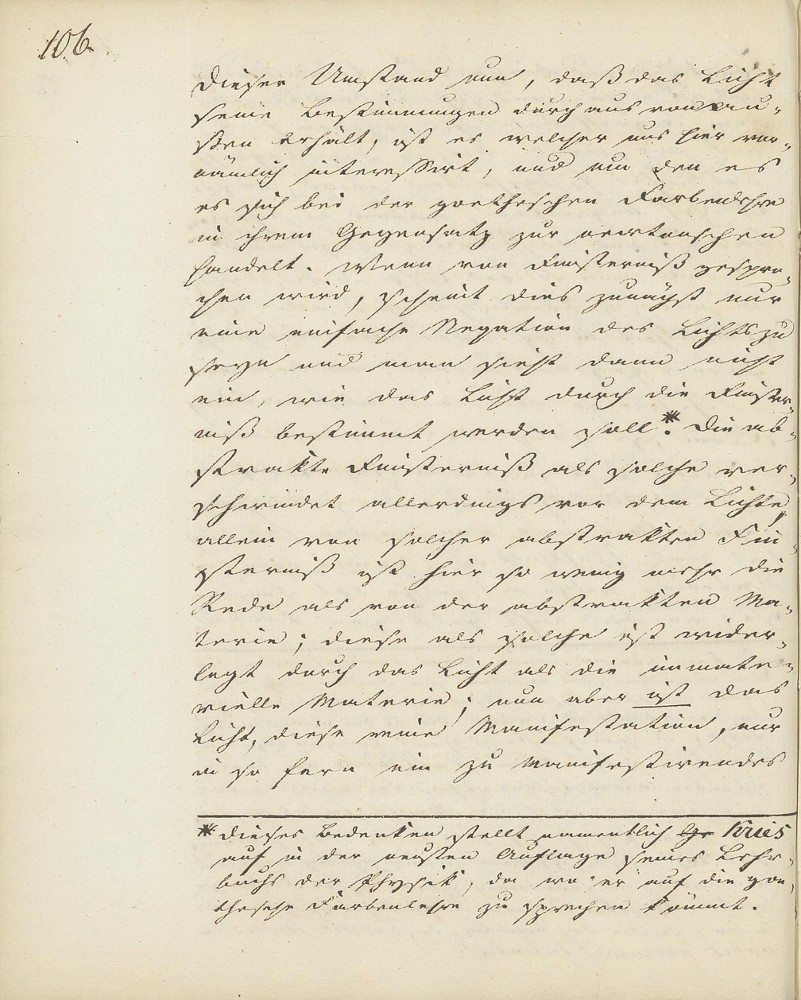 106.
Dieser Umstand nun, daß das Licht
seine Bestimmungen durchaus von au-
ßen erhält, ist es welcher uns hier vor-
nämlich interessirt, und um den es
es sich bei der goetheschen Farbenlehre
in ihrem Gegensatz zur newtonschen
handelt. Wenn von Finsterniß gespro-
chen wird, scheint dies zunächst nur
eine einfache Negation des Lichts zu
seyn und man sieht dann nicht
ein, wie das Licht durch die Finster-
niß bestimmt werden soll.* Die ab-
strakte Finsterniß als solche ver-
schwindet allerdings vor dem Lichte,
allein von solcher abstrakten Fin-
sterniß ist hier so wenig mehr die
Rede als von der abstrakten Ma-
terie; diese als solche ist wider-
legt durch das Licht als die immate-
rielle Materie; nun aber ist das
Licht, diese reine Manifestation, nur
in so fern ein zu Manifestirendes
* Dieses Bedenken stellt namentlich Kries
auf in der neusten Auflage seines Lehr-
buchs der Physik, da wo er auf die goe-
thesche Farbenlehre zu sprechen kömmt.